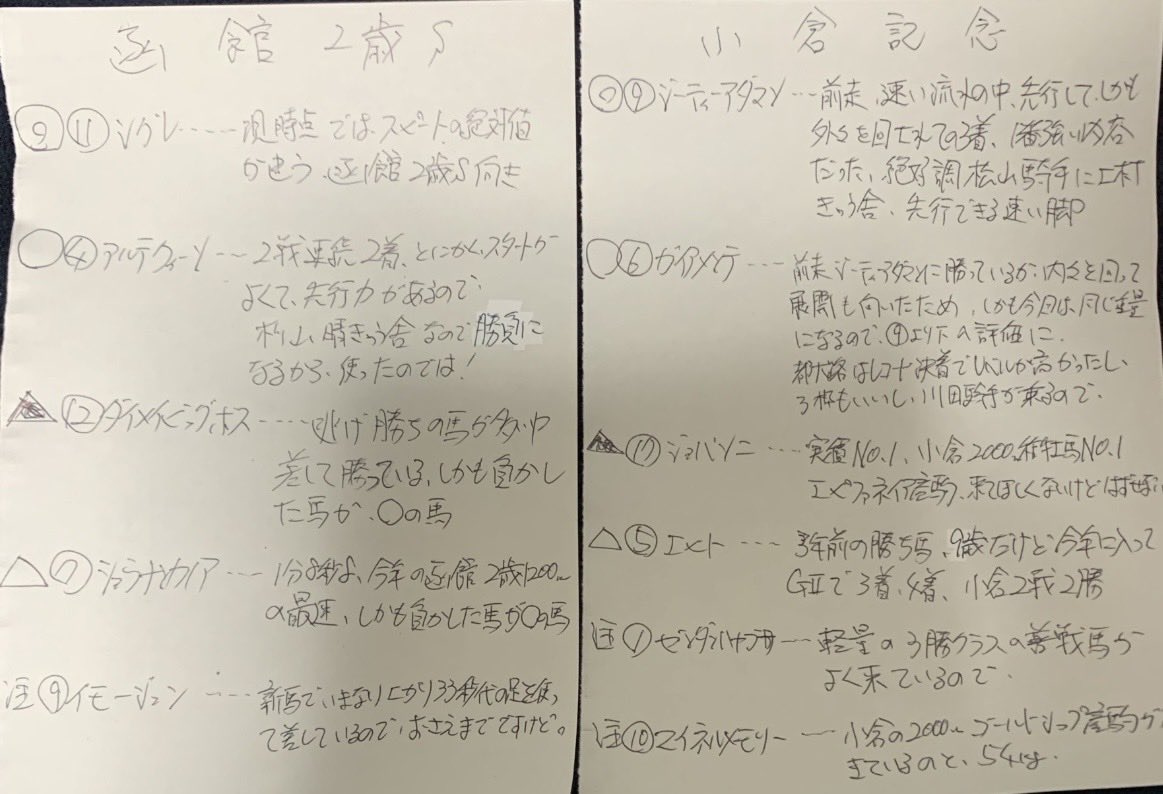 函館2歳S
◎⑪ シグレ‥‥ 現時点ではスピードの絶対値
が違う、函館2歳S向き
○④ アルテヴィーソ ‥ 2戦連続2着、とにかくスタートが
よくて、先行力があるので、
杉山晴きゅう舎なので勝負に
なるから、使ったのでは!
▲⑫ ダイメイビッグボス ‥‥ 逃げ勝ちの馬が多い中
差して勝っている、しかも負かし
た馬が、○の馬
△⑦ ‥‥ 1分8秒8、今年の函館2歳1200m
の最速、しかも負かした馬が○の馬
注⑨ イモージェン ‥‥ 新馬でいきなり上がり33秒代の足を使っ
て差しているので、おさえまでですけど。
小倉記念
◎⑨ ジーティーアダマン ‥‥ 前走、速い流れの中、先行して、しかも
外々を回されての3着、1番強い内容
だった、絶好調松山騎手に上村
きゅう舎、先行できる速い脚
○⑥ ガイアメンテ ‥‥ 前走ジーティアダマンに勝っているが、内々を回って
展開も向いたため、しかも今回は、同じ斤量
になるので、⑨より下の評価に、
都大路はレコード決着でレベルが高かったし、
3枠もいいし、川田騎手が乗るので、
▲ ジョバンニ ‥‥ 実績NO.1、小倉2000m種牡馬NO.1
エピファネイア産駒、来てほしくないけど
△⑤ エヒト ‥‥ 3年前の勝ち馬、9歳だけど今年に入って
GⅡで3着、4着、小倉2戦2勝
注① ‥ 軽量の3勝クラスの善戦馬が
よく来ているので、
注⑩ マイネルメモリー ‥ 小倉の2000mゴールドシップ産駒が
きているのと、54kg.